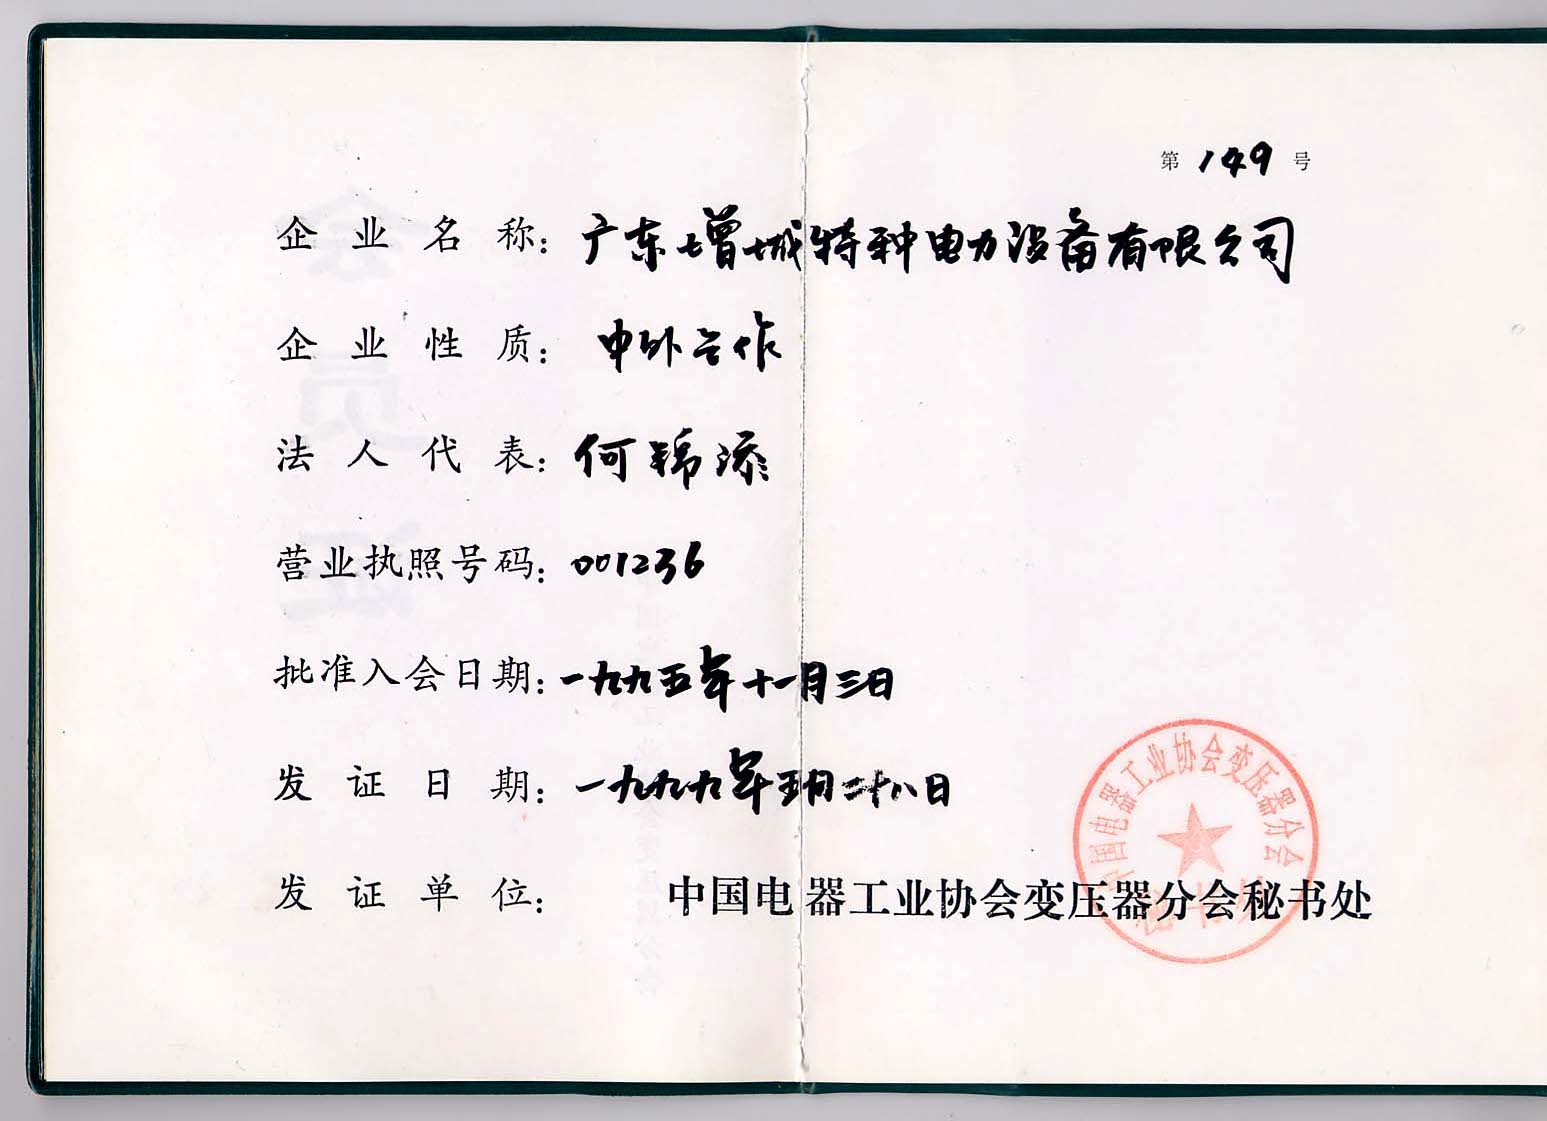 第 149 号
企业名称：广东增城特种电力设备有限公司
企业性质：中外合作
法人代表：何锦添
营业执照号码：001236
批准入会日期：一九九五年十一月三日
发证日期：一九九九年五月二十八日
发证单位：中国电器工业协会变压器分会秘书处
中国电器工业协会变压器分会
秘书处